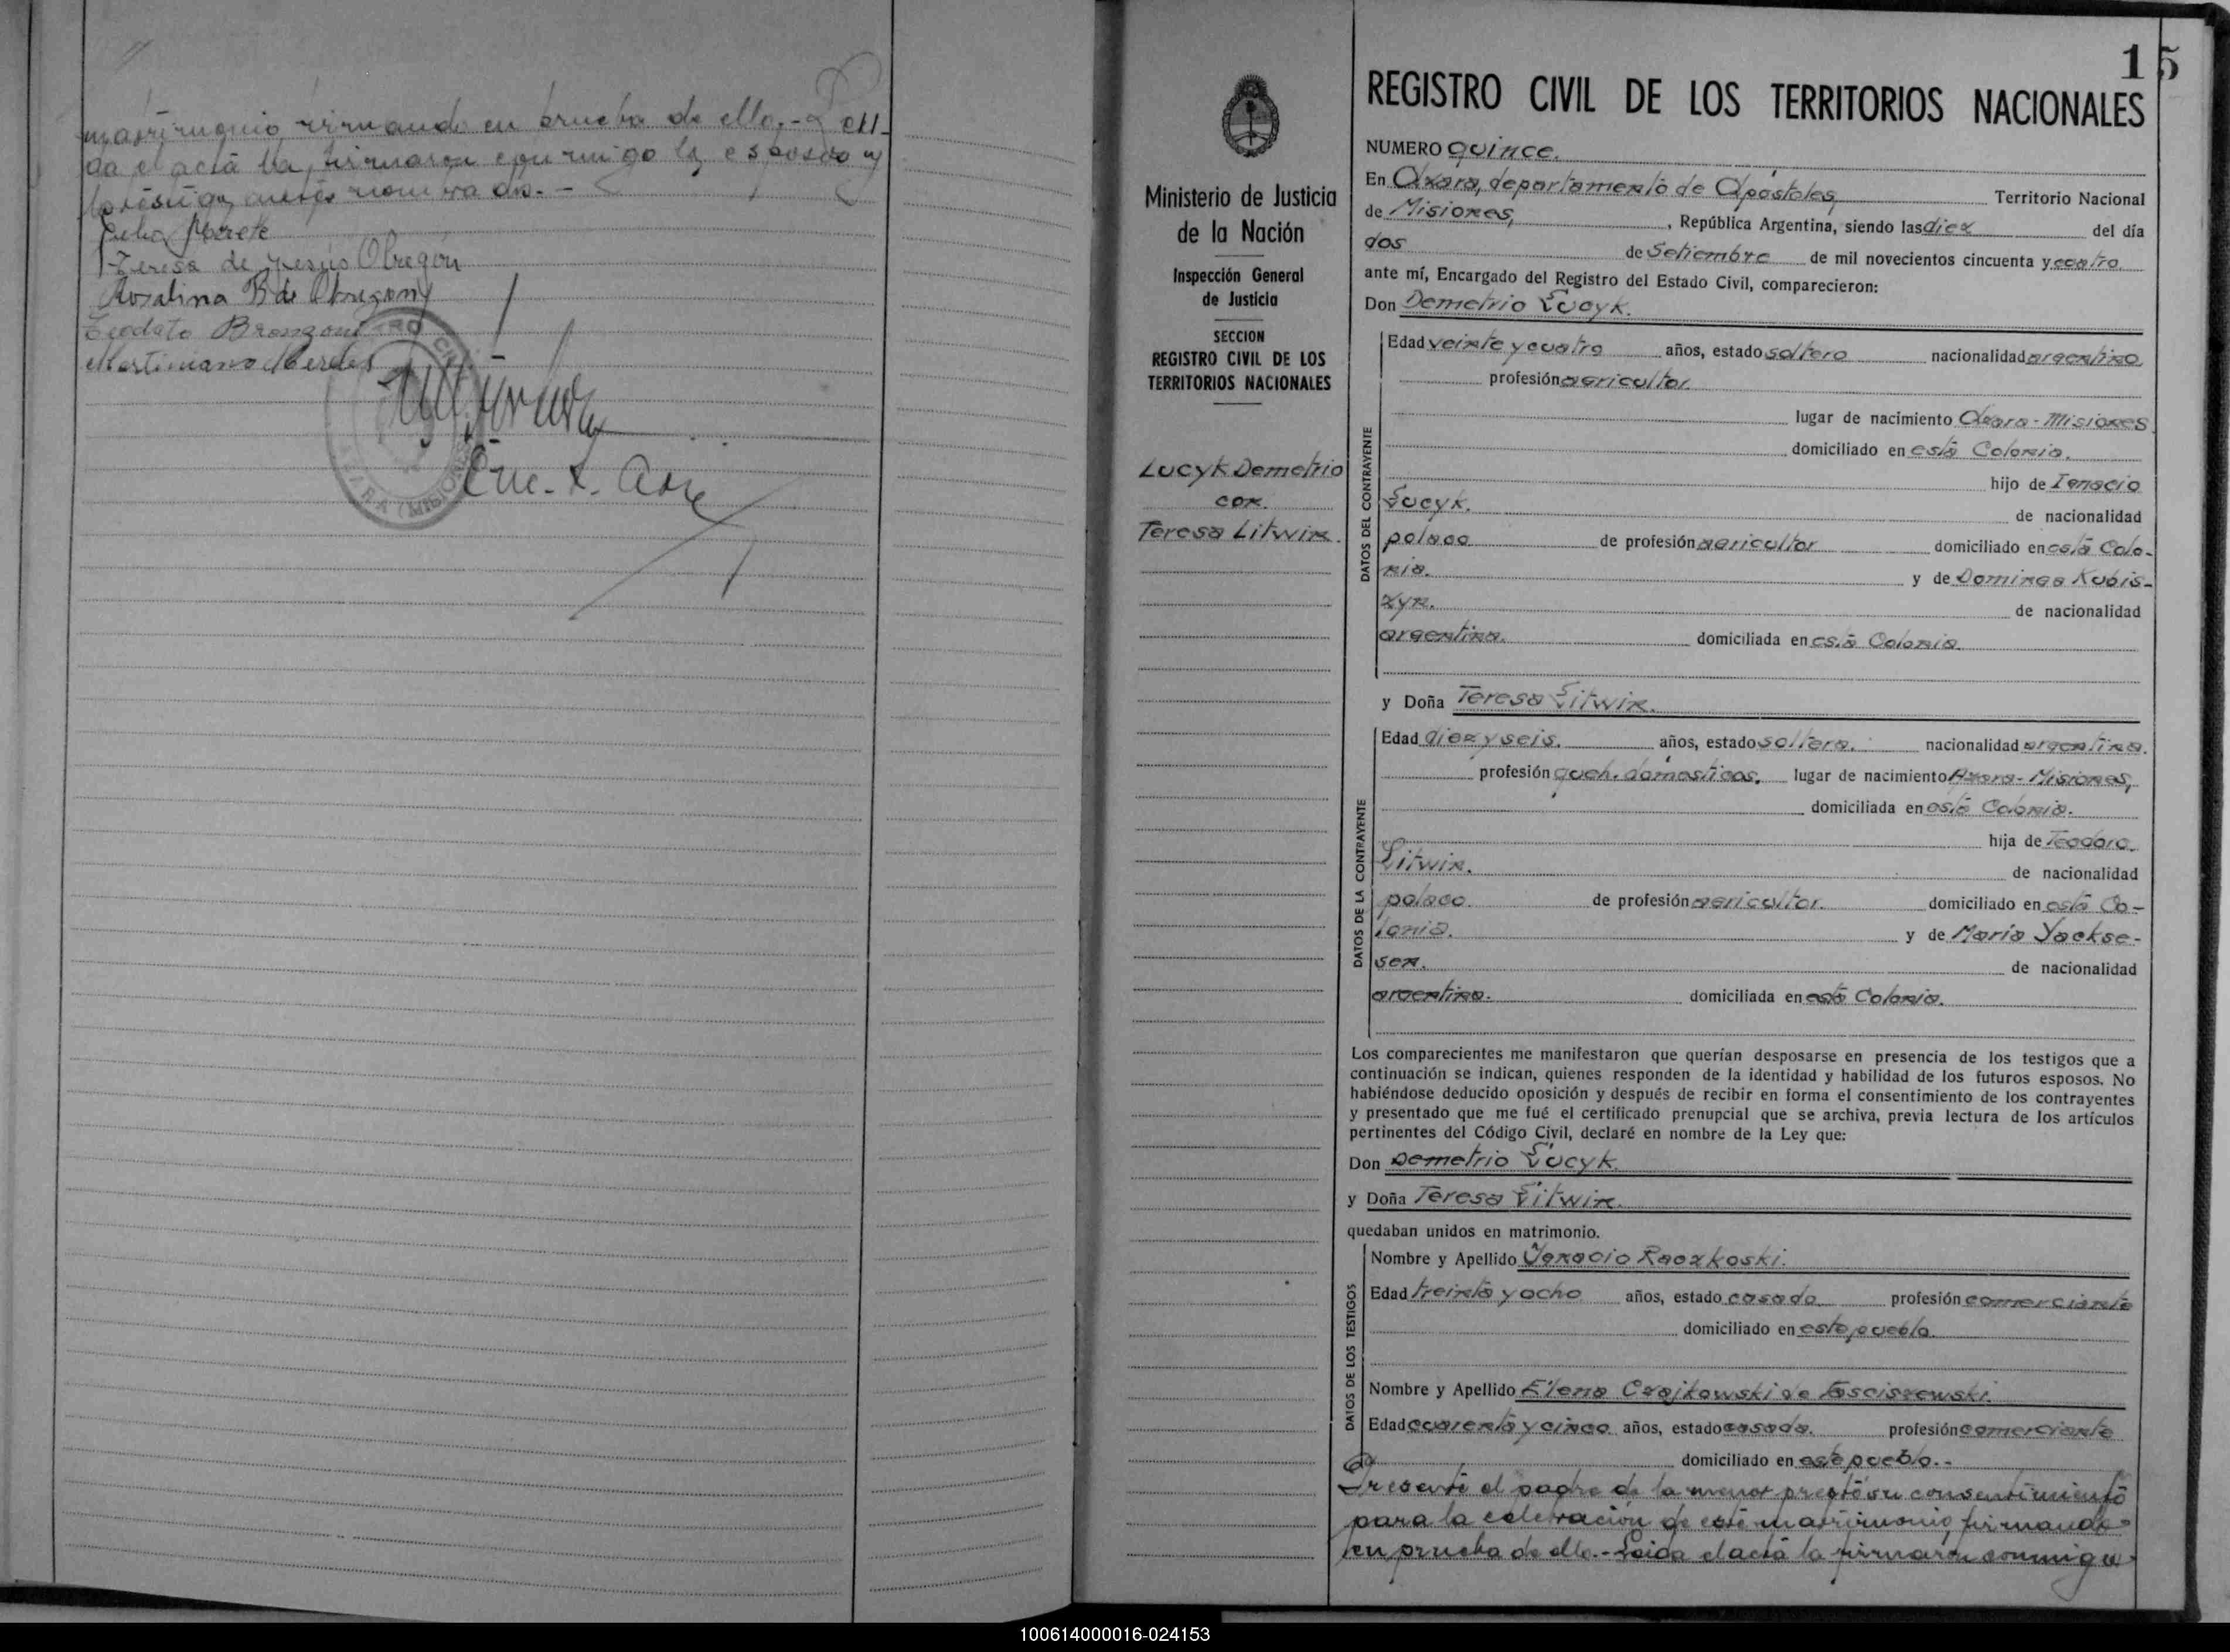 matrimonio, firmando en prueba de ello.- Leí-
da el acta la firmaron conmigo los esposos y
los testigos antes nombrados.-
Teresa de Jesús Obregón
Rosalina B de Obregón
Teodato Bronzoni
Martiniano
Enc.
Ministerio de Justicia
de la Nación
Inspección General
de Justicia
SECCION
REGISTRO CIVIL DE LOS
TERRITORIOS NACIONALES
Lucyk Demetrio
con
Teresa Litwin.
15
REGISTRO CIVIL DE LOS TERRITORIOS NACIONALES
NUMERO quince.
En Azara, departamento de Apóstoles, Territorio Nacional
de Misiones, , República Argentina, siendo las diez del día
dos de Setiembre de mil novecientos cincuenta y cuatro
ante mí, Encargado del Registro del Estado Civil, comparecieron:
Don Demetrio Lucyk.
DATOS DEL CONTRAYENTE
Edad veinte y cuatro años, estado soltero nacionalidad argentino
profesión agricultor
lugar de nacimiento Azara-Misiones
domiciliado en está Colonia.
hijo de Ignacio
Lucyk. de nacionalidad
polaco de profesión agricultor domiciliado en está Colo-
nia. y de Dominga Kubis-
zyn. de nacionalidad
argentina. domiciliada en está Colonia.
y Doña Teresa Litwin.
DATOS DE LA CONTRAYENTE
Edad diez y seis. años, estado soltera. nacionalidad argentina.
profesión queh. domesticos. lugar de nacimiento Azara-Misiones,
domiciliada en está Colonia.
hija de Teodoro.
Litwin. de nacionalidad
polaco. de profesión agricultor. domiciliado en está Co-
lonia. y de Maria Yackse-
sen. de nacionalidad
argentina. domiciliada en está Colonia.
Los comparecientes me manifestaron que querían desposarse en presencia de los testigos que a
continuación se indican, quienes responden de la identidad y habilidad de los futuros esposos. No
habiéndose deducido oposición y después de recibir en forma el consentimiento de los contrayentes
y presentado que me fué el certificado prenupcial que se archiva, previa lectura de los artículos
pertinentes del Código Civil, declaré en nombre de la Ley que:
Don Demetrio Lucyk
y Doña Teresa Litwin.
quedaban unidos en matrimonio.
DATOS DE LOS TESTIGOS
Nombre y Apellido Ygnacio Raczkoski.
Edad treinta y ocho años, estado casado profesión comerciante
domiciliado en este pueblo.
Nombre y Apellido Elena Czajkowski de Tosciszewski.
Edad cuarenta y cinco años, estado casada. profesión comerciante
domiciliado en este pueblo.-
Presente el padre de la menor prestó su consentimiento
para la celebración de este matrimonio, firmando
en prueba de ello.- Leida el acta la firmaron conmigo
100614000016-024153